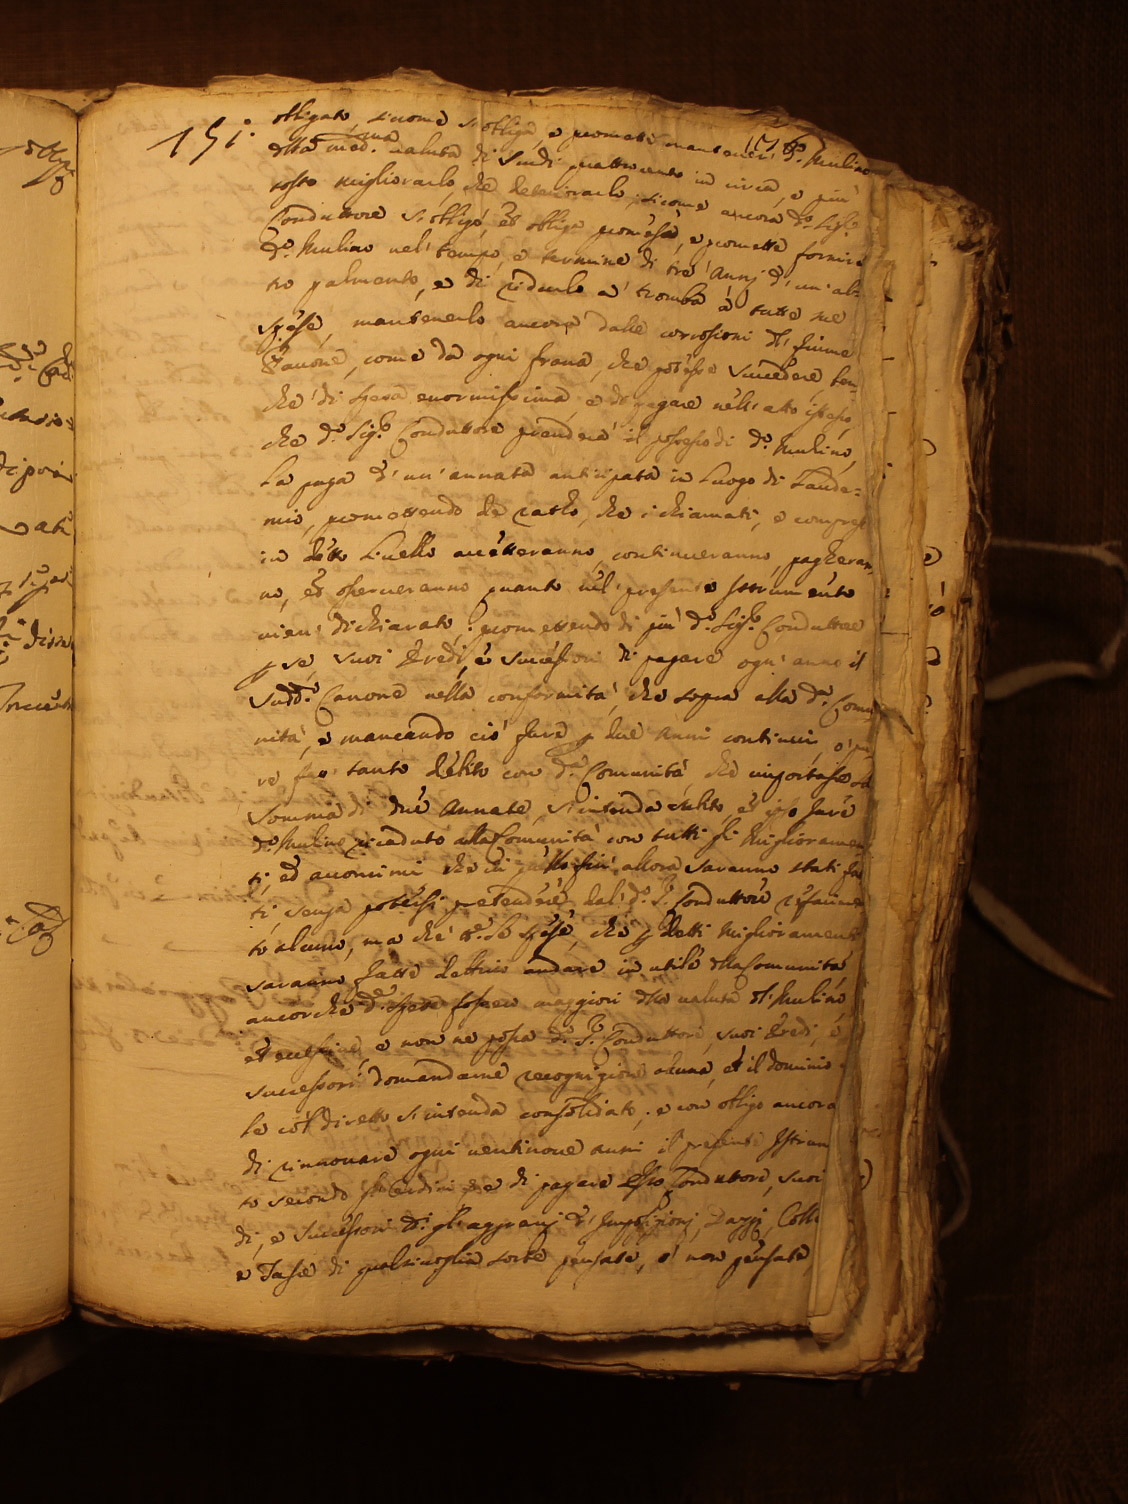 151.
obligato, siccome si obliga, e promette mantener' d.º Mulino
della med.ma valuta di Scudi quattrocento in circa, e più
tosto migliorarlo, che deteriorarlo, siccome ancora d.º Sig.re
Conduttore si obligò, et obliga promesse, e promette fornire
d.º Mulino nel' tempo, e termine di trè Anni d' un' al-
tro palmento, e di ridurlo a' tromba à tutte sue
spese, mantenerlo ancora dalle corrosioni del fiume
Savone, come da ogni frana, che potesse succedere ben-
che di spesa enormissima, e di pagare nell' atto istesso
che d.º Sig.re Conduttore prenderà il possesso di d.º Mulino,
La paga d' un' annata anticipata in Luogo di Laude-
mio, promettendo de ratho, che i chiamati, e compresi
in detto Livello accetteranno, continueranno, pagheran-
no, et osserveranno quanto nel' presente Istrumento
vien' dichiarato; promettendo di più d.º Sig.re Conduttore
p se, suoi Eredi, e successori di pagare ogn' anno il
sudd.º Canone nella conformità, che sopra alla d.ª Comu-
nità, e mancando ciò fare p due Anni continui, ò pu-
re far tanto debito con d.ª Comunità che importasse la
somma di due Annate, s'intenda subito, et ipso Jure
d.º Mulino ricaduto alla Comunità con tutti gli Miglioramen-
ti, ed acconcimi che in quello fin' allora saranno stati fat-
ti senza potersi pretendere dal' d.º S.re Conduttore rifacimen-
to alcuno, ma che le spese, che p detti Miglioramenti
saranno fatte debbino andare in utile della Comunità
ancorche d.e spese fossero maggiori della valuta del Mulino,
et eccessive, e non ne possa d.º S.re Conduttore, suoi Eredi, e
successori domandarne recognizione alcuna, et il dominio
diretto s'intenda consolidato; e con obligo ancora
di rinnovare ogni ventinove anni il presente Istrumen-
to secondo gli Ordini e di pagare esso Conduttore, suoi
di, e successori gl' aggravj d' Imposizioni, Dazzi, Colle
e Tasse di qualsivoglia sorte pensate, ò non pensate